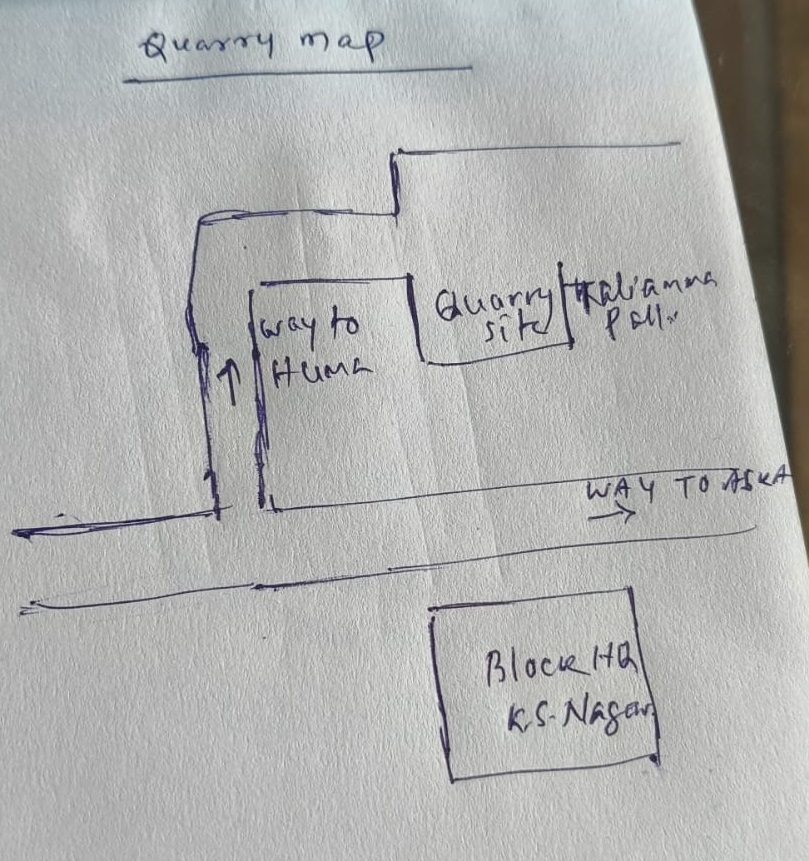 Quarry map
Quarry site
Kaliamma
way to
Huma
WAY TO ASKA
Block HQ
K.S. Nagar